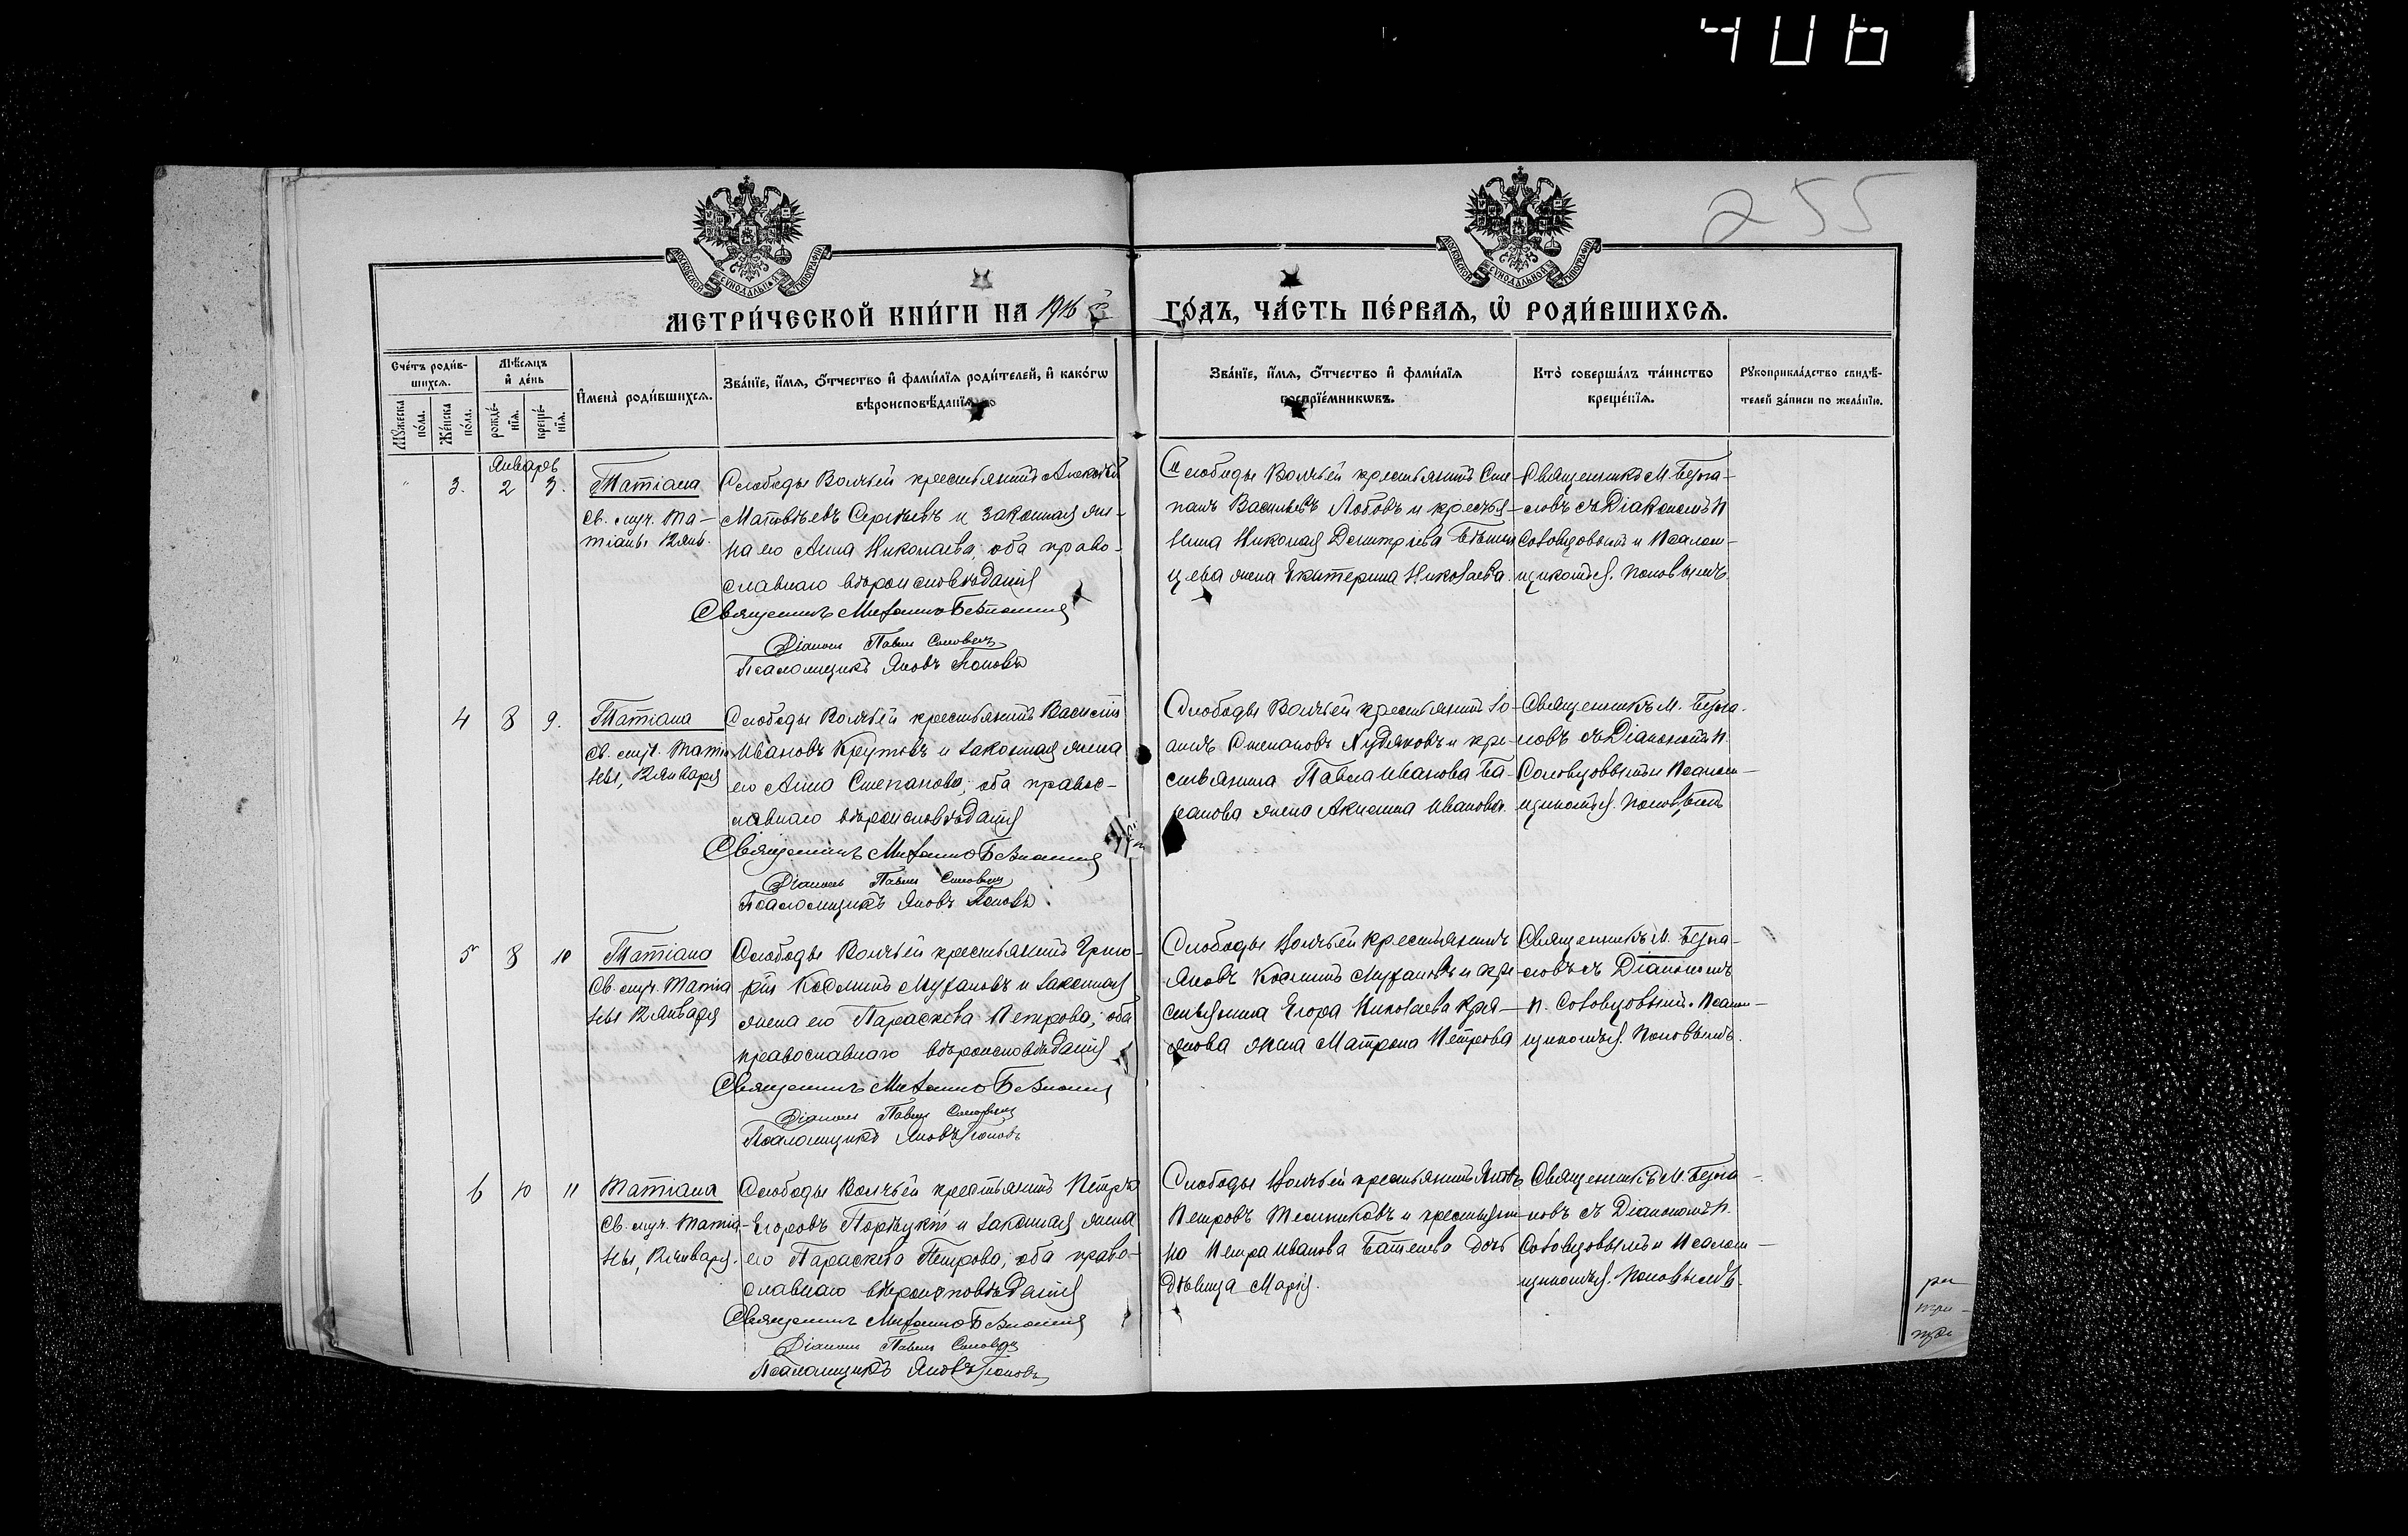 406
255
МОСКОВСКОЙ СѴНОДАЛЬНОЙ ТИПОГРАФІИ
МОСКОВСКОЙ СѴНОДАЛЬНОЙ ТИПОГРАФІИ
МЕТРИ́ЧЕСКОЙ КНИ́ГИ НА 1916 ГО́ДЪ, ЧА́СТЬ ПЕ́РВАѦ, Ѡ҆ РОДИ́ВШИХСѦ.
Сче́тъ роди́в-
шихсѧ.
Мꙋ́жеска по́ла.
Же́нска по́ла.
Мѣ́сѧцъ
и҆ де́нь
рожде́-
нїѧ.
креще́-
нїѧ.
И҆мена̀ роди́вшихсѧ.
Зва́нїе, и҆́мѧ, ѻ҆́тчество и҆ фами́лїѧ роди́телей, и҆ како́гѡ
вѣроисповѣ́данїѧ
Зва́нїе, и҆́мѧ, ѻ҆́тчество и҆ фами́лїѧ
воспрїе́мникѡвъ.
Кто̀ соверша́лъ та́инство
креще́нїѧ.
Рꙋкоприкла́дство свидѣ́-
телей за́писи по жела́нїю.
Январь
" 3. 2 3.
Татіана
Св. муч. Та-
тіаны 12 янв.
Слободы Волчьей крестьянинъ Алексѣй
Матвѣевъ Сергѣевъ и законная же-
на его Анна Николаева, оба право-
славнаго вѣроисповѣданія
Священникъ Михаилъ
Діаконъ Павелъ Соловцовъ
Псаломщикъ Яковъ Поповъ
Слободы Волчьей крестьянинъ Сте-
панъ Васильевъ Лобовъ и крестья-
нина Николая Димитріева
цева жена Екатерина Николаева.
Священникъ М.
новъ съ Діакономъ П
Соловцовымъ и Псалом-
щикомъ Я. Поповымъ.
4 8 9.
Татіана
Св. муч. Татіа
ны, 12 января
Слободы Волчьей крестьянинъ Василій
Ивановъ Крутовъ и законная жена
его Анна Степанова, оба правос-
лавнаго вѣроисповѣданія
Священникъ Михаилъ
Діаконъ Павелъ Соловцовъ
Псаломщикъ Яковъ Поповъ.
Слободы Волчьей крестьянинъ Іо-
аннъ Степановъ Худяковъ и кре-
стьянина Павла Иванова Ба-
ранова жена Акилина Иванова.
Священникъ М.
новъ съ Діакономъ П.
Соловцовымъ и Псалом-
щикомъ Я. Поповымъ
5 8 10
Татіана
Св. муч. Татіа
ны 12 Января
Слободы Волчьей крестьянинъ Григо-
рій Косминъ Мухановъ и законная
жена его Параскева Петрова, оба
православнаго вѣроисповѣданія
Священникъ Михаилъ
Діаконъ Павелъ Соловцовъ
Псаломщикъ Яковъ Поповъ
Слободы Волчьей крестьянинъ
Яковъ Косминъ Мухановъ и кре-
стьянина Егора Николаева
жена Матрона Петрова
Священникъ М.
новъ съ Діакономъ
П. Соловцовымъ и Псалом-
щикомъ Я. Поповымъ.
6 10 11
Татіана
Св. муч. Татіа-
ны, 12 января.
Слободы Волчьей крестьянинъ Петръ
Егоровъ и законная жена
его Параскева Петрова, оба право-
славнаго вѣроисповѣданія
Священникъ Михаилъ
Діаконъ Павелъ Соловцовъ
Псаломщикъ Яковъ Поповъ
Слободы Волчьей крестьянинъ Яковъ
Петровъ и крестьяни-
на Петра Иванова дочь
дѣвица Марія.
Священникъ М.
новъ съ Діакономъ П.
Соловцовымъ и Псалом-
щикомъ Я. Поповымъ.